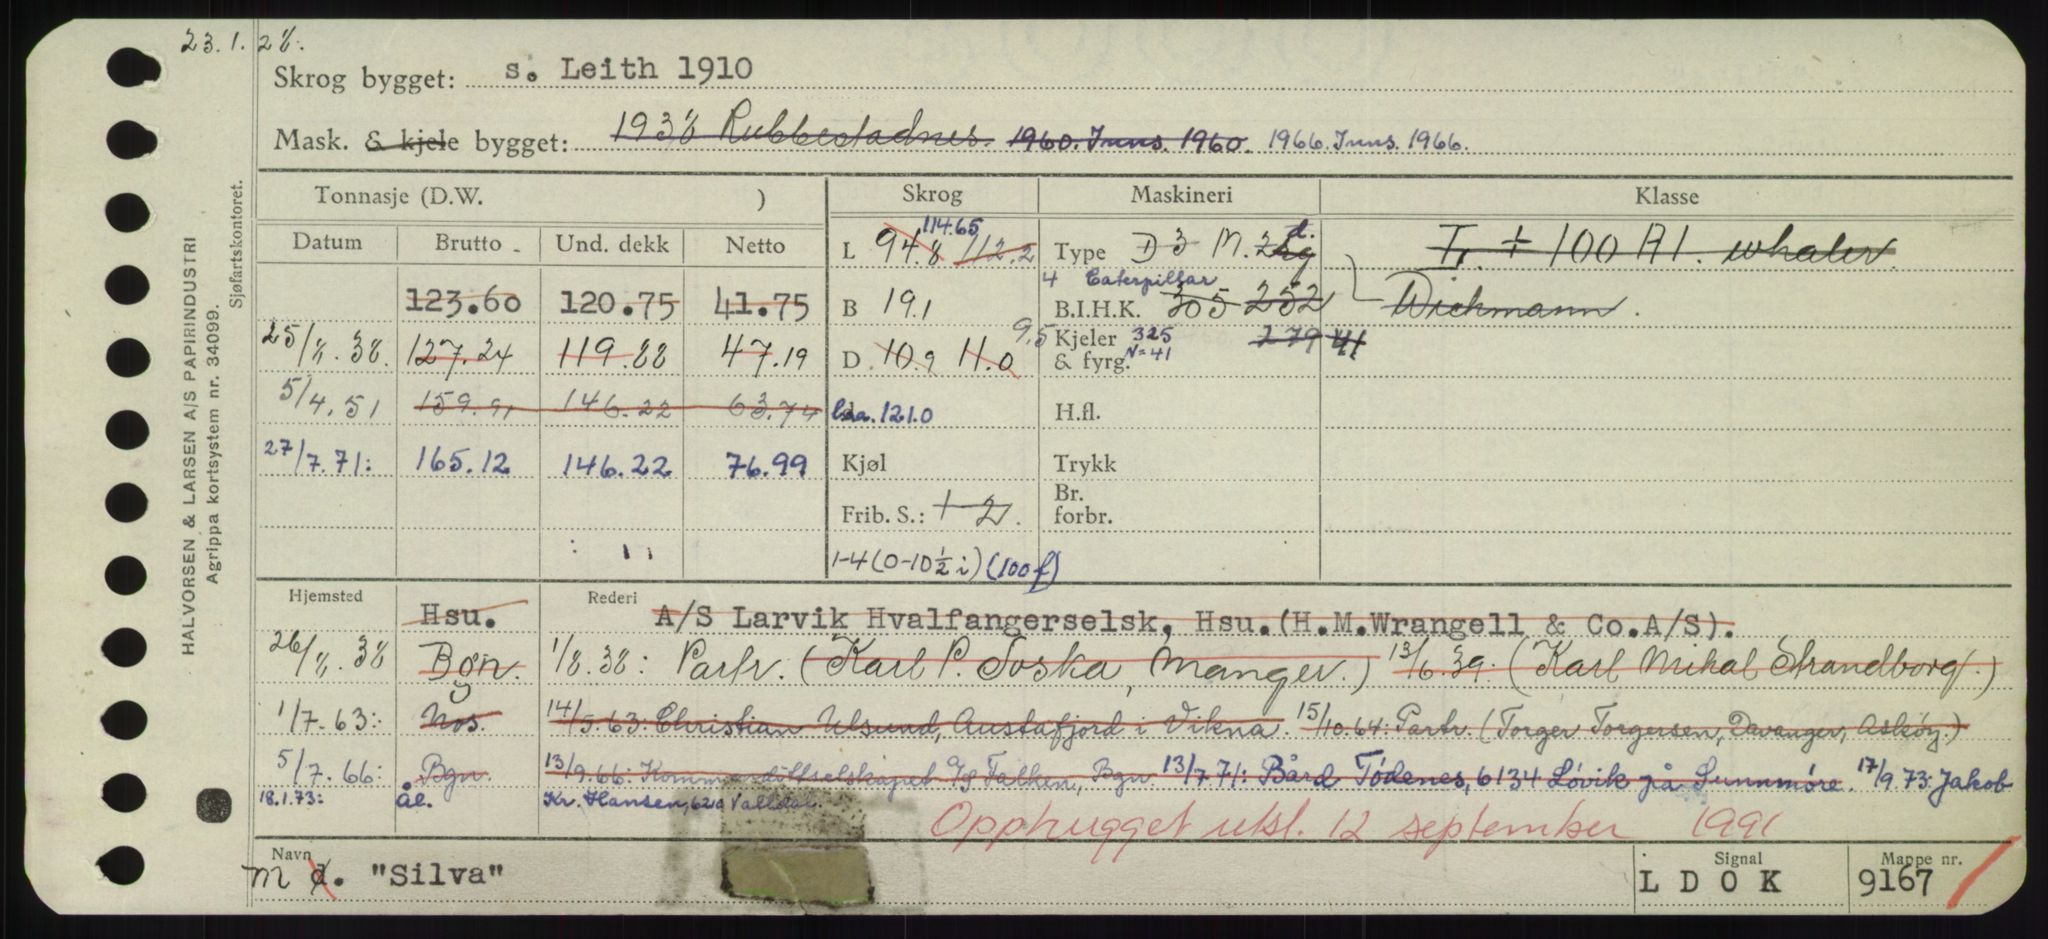 23.1.28.
Skrog bygget: s. Leith 1910
Mask. & kjele bygget: 1938 Rubbestadnes. 1960. Inns. 1960. 1966. Inns. 1966.
HALVORSEN & LARSEN A/S PAPIRINDUSTRI
Agrippa kortsystem nr. 34099.
Sjøfartskontoret.
Tonnasje (D.W. ) Skrog Maskineri Klasse
Datum Brutto Und. dekk Netto
123.60 120.75 41.75
25/8.38. 127.24 119.88 47.19
5/4.51 159.91 146.22 63.74
27/7.71: 165.12 146.22 76.99
L 94.8 112.2 114.65
B 19.1
D. 10.9 11.0 9,5
loa. 121.0
Kjøl
Frib. S.: + 2.
1-4 (0-10½ i) (100 f)
Type D 3 M. 2 d.
4 Caterpillar
B.I.H.K. 305 252
Kjeler 325 279 41
& fyrg. N=41
H.fl.
Trykk
Br.
forbr.
+ 100 A1. whaler.
Wichmann.
Hjemsted Hsu. Rederi A/S Larvik Hvalfangerselsk, Hsu.(H.M.Wrangell & Co.A/S).
26/8.38 Bgn. 1/8.38: Partr. (Karl P. Toska, Manger.) 13/6.39. (Karl Mihal Strandborg.)
1/7-63: Nos. 14/5.63: Christian Ulsund, Austafjord i Vikna. 15/10.64: Partr. (Torger Torgersen, Davanger, Askøy.)
5/7.66: Bgn. 13/9.66: Kommandittselskapet I/S Falken, Bgn. 13/7 71: Bård Tødenes, 6134 Løvik på Sunnmøre. 17/9.73: Jakob
18.1.73: Ål. Kr. Hansen, 6210 Valldal.
Opphugget utsl. 12 september 1991
Navn M d. "Silva" Signal L D O K Mappe nr. 9167